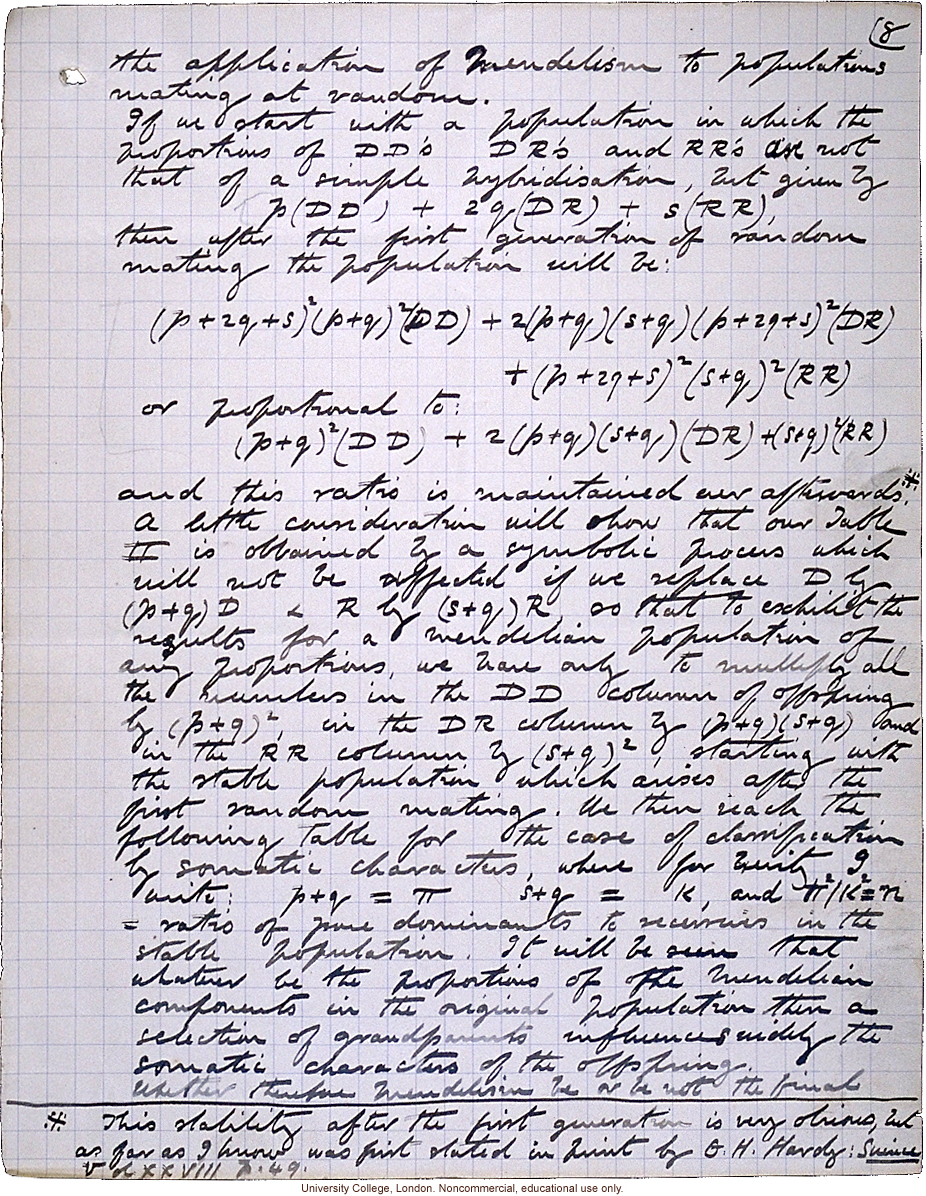 (8
the application of Mendelism to populations
mating at random.
If we start with a population in which the
proportions of DD's DR's and RR's are not
that of a simple hybridisation, but given by
p(DD) + 2q(DR) + s(RR),
then after the first generation of random
mating the population will be:
(p+2q+s)²(p+q)²(DD) + 2(p+q)(s+q)(p+2q+s)²(DR)
+ (p+2q+s)²(s+q)²(RR)
or proportional to:
(p+q)²(DD) + 2(p+q)(s+q)(DR) + (s+q)²(RR)
and this ratio is maintained ever afterwards.*
A little consideration will show that our Table
II is obtained by a symbolic process which
will not be affected if we replace D by
(p+q)D & R by (s+q)R, so that to exhibit the
results for a mendelian population of
any proportions, we have only to multiply all
the numbers in the DD column of offspring
by (p+q)², in the DR column by (p+q)(s+q) and
in the RR column by (s+q)², starting with
the stable population which arises after the
first random mating. We then reach the
following table for the case of classification
by somatic characters, where for brevity I
write: p+q = π s+q = κ, and π²/κ² = n
= ratio of pure dominants to recessives in the
stable population. It will be seen that
whatever be the proportions of the Mendelian
components in the original population then a
selection of grandparents influences widely the
somatic characters of the offspring.
Whether therefore Mendelism be or be not the final
* This stability after the first generation is very obvious, but
as far as I know was first stated in print by G. H. Hardy: Science
vol XXVIII p. 49.
University College, London. Noncommercial, educational use only.